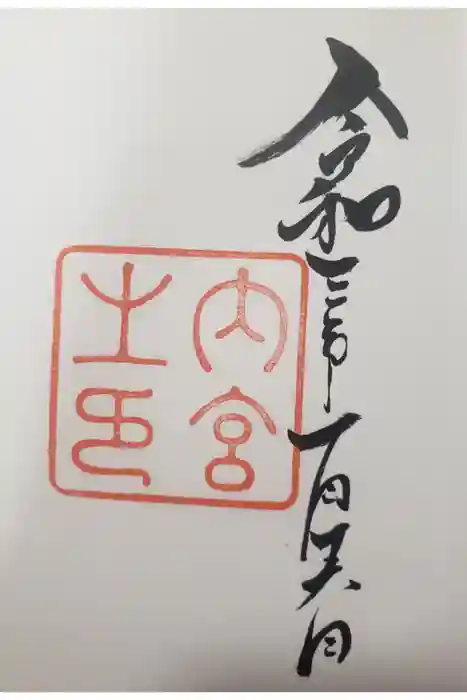 令和三年一月日
内宮
之印